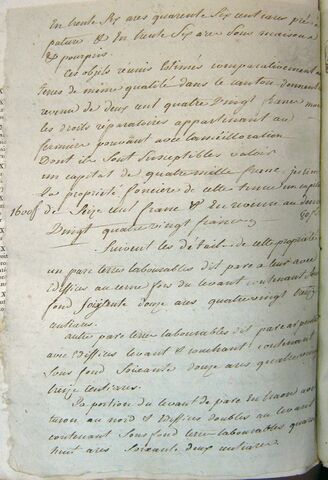 En trente Six ares quarente Six centiares
pature & En trente Six ares Sous maisons
& pourpris
Ces objets réunis Estimés comparativement
terres de même qualité dans le canton donnent
revenu de deux cent quatre Vingt francs mais
les droits réparatoires appartenant au
fermier pouvant avec l'amélioration
Dont ils Sont Susceptables valoir
un capital de quatre mille francs
la propriété foncière de cette tenue un capital
1600f de Seize cent francs & de revenu au denier
Vingt quatre vingt francs 80f
Suivent les détails de cette propriété
un parc terres labourables dit parc avec
Edifices au cerne fors du levant contenant
fond Soixante douze ares quatre vingt treize
centiares
autre parc terre labourables dit parc
avec Edifices levant & couchant contenant
Sous fond Soixante douze ares quatre vingt
treize centiares
La portion du levant de parc
au nord & Edifices doubles au levant
contenant Sous fond terre labourables quarente
huit ares Soixante deux centiares